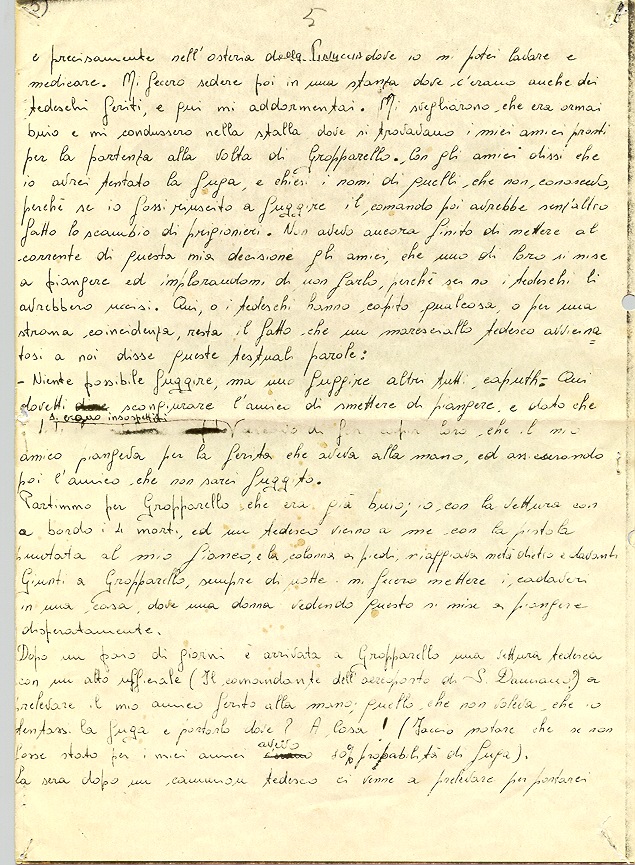 5
e precisamente nell'osteria della dove io mi potei lavare e
medicare. Mi fecero sedere poi in una stanza dove c'erano anche dei
tedeschi feriti, e qui mi addormentai. Mi svegliarono che era ormai
buio e mi condussero nella stalla dove si trovavano i miei amici pronti
per la partenza alla volta di Gropparello. Con gli amici dissi che
io avrei tentato la fuga, e chiesi i nomi di quelli che non conoscevo,
perchè se io fossi riuscito a fuggire il comando poi avrebbe senz'altro
fatto lo scambio dei prigionieri. Non avevo ancora finito di mettere al
corrente di questa mia decisione gli amici, che uno di loro si mise
a piangere ed implorandomi di non farlo, perchè se no i tedeschi li
avrebbero uccisi. Qui, o i tedeschi hanno capito qualcosa, o per una
strana coincidenza, resta il fatto che un maresciallo tedesco avvicina=
tosi a noi disse queste testuali parole:
- Niente possibile fuggire, ma uno fuggire altri tutti caputh= Qui
dovetti scongiurare l'amico di smettere di piangere, e dato che
si erano insospettiti
far capir loro, che il mio
amico piangeva per la ferita che aveva alla mano, ed assicurando
poi l'amico che non sarei fuggito.
Partimmo per Gropparello che era già buio; io con la vettura con
a bordo i 4 morti, ed un tedesco vicino a me con la pistola
puntata al mio fianco e la colonna a piedi, viaggiava metà dietro e davanti
Giunti a Gropparello, sempre di notte mi fecero mettere i cadaveri
in una casa, dove una donna vedendo questo si mise a piangere
disperatamente.
Dopo un paio di giorni è arrivata a Gropparello una vettura tedesca
con un alto ufficiale (Il comandante dell'aeroporto di S. Damiano) a
prelevare il mio amico ferito alla mano; quello che non voleva che io
tentassi la fuga e portarlo dove? A Casa! (Faccio notare che se non
fosse stato per i miei amici avevo 80% probabilità di fuga).
La sera dopo un cammion tedesco ci venne a prelevare per portarci